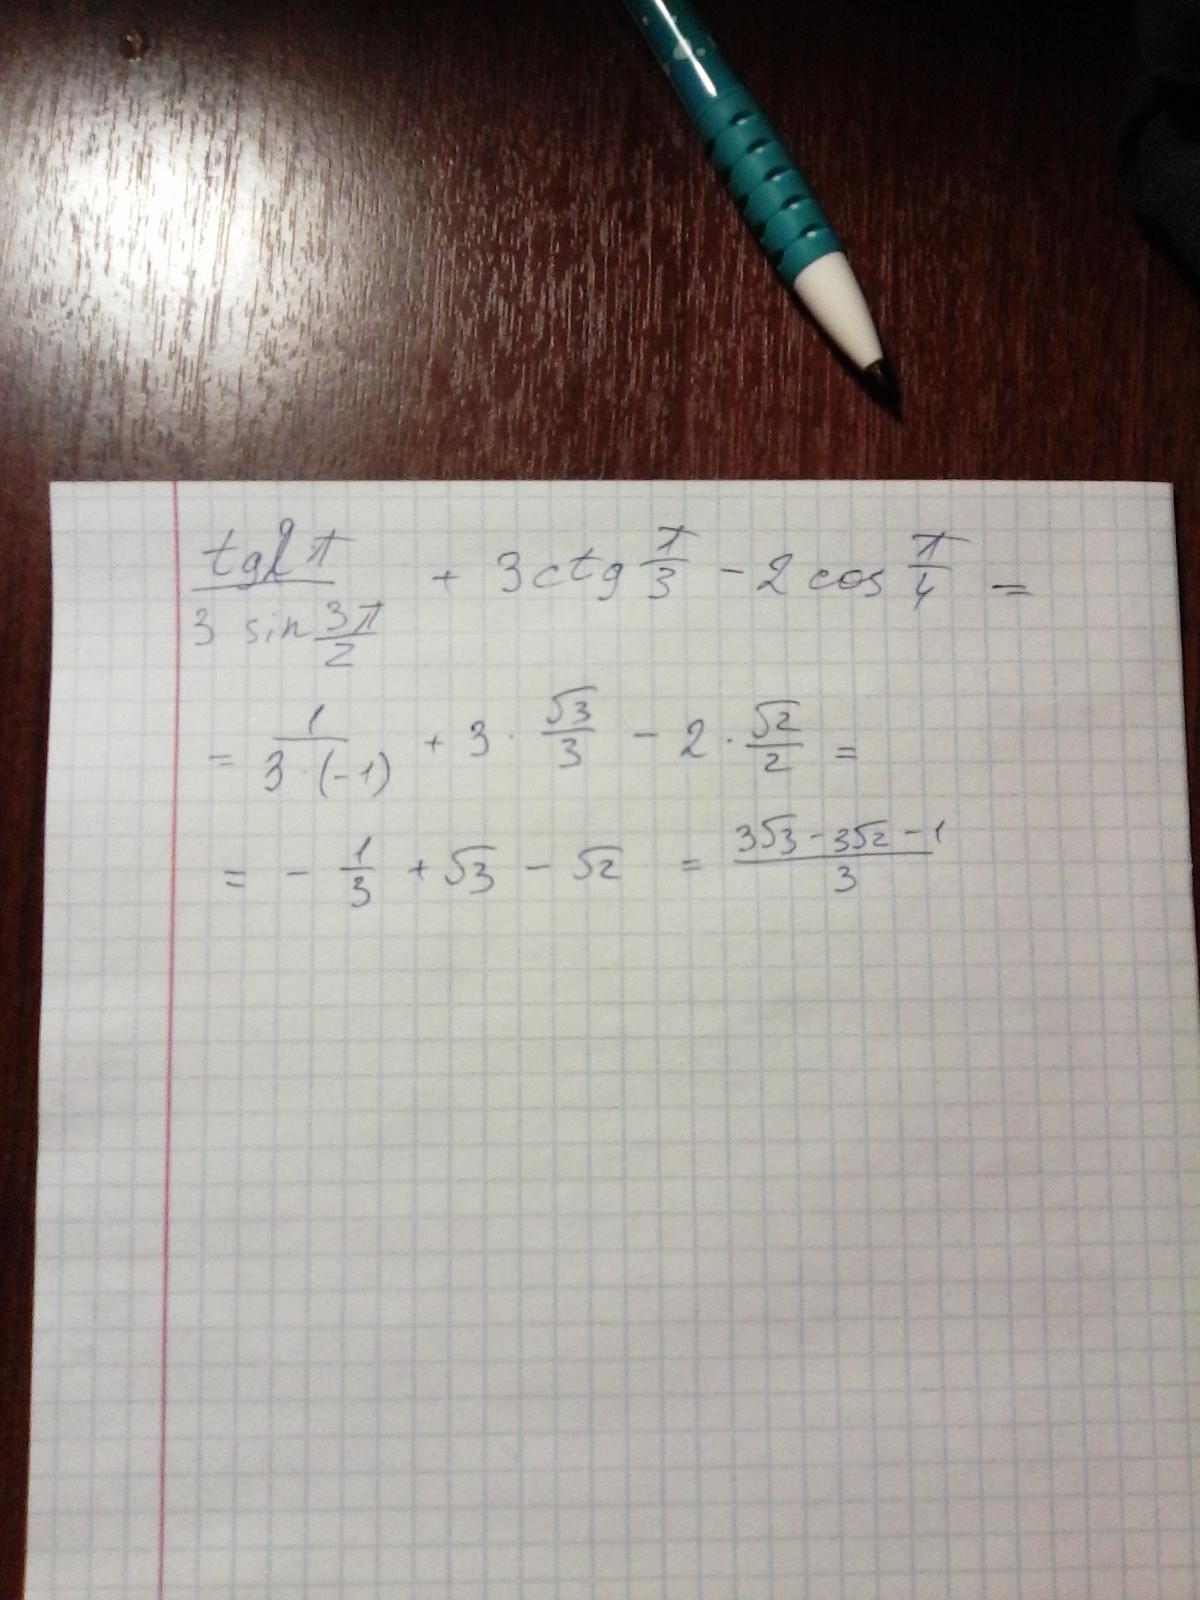 tg2π / 3 sin 3π/2 + 3ctg π/3 - 2 cos π/4 =
= 1 / 3·(-1) + 3 · √3/3 - 2 · √2/2 =
= - 1/3 + √3 - √2 = 3√3 - 3√2 - 1 / 3